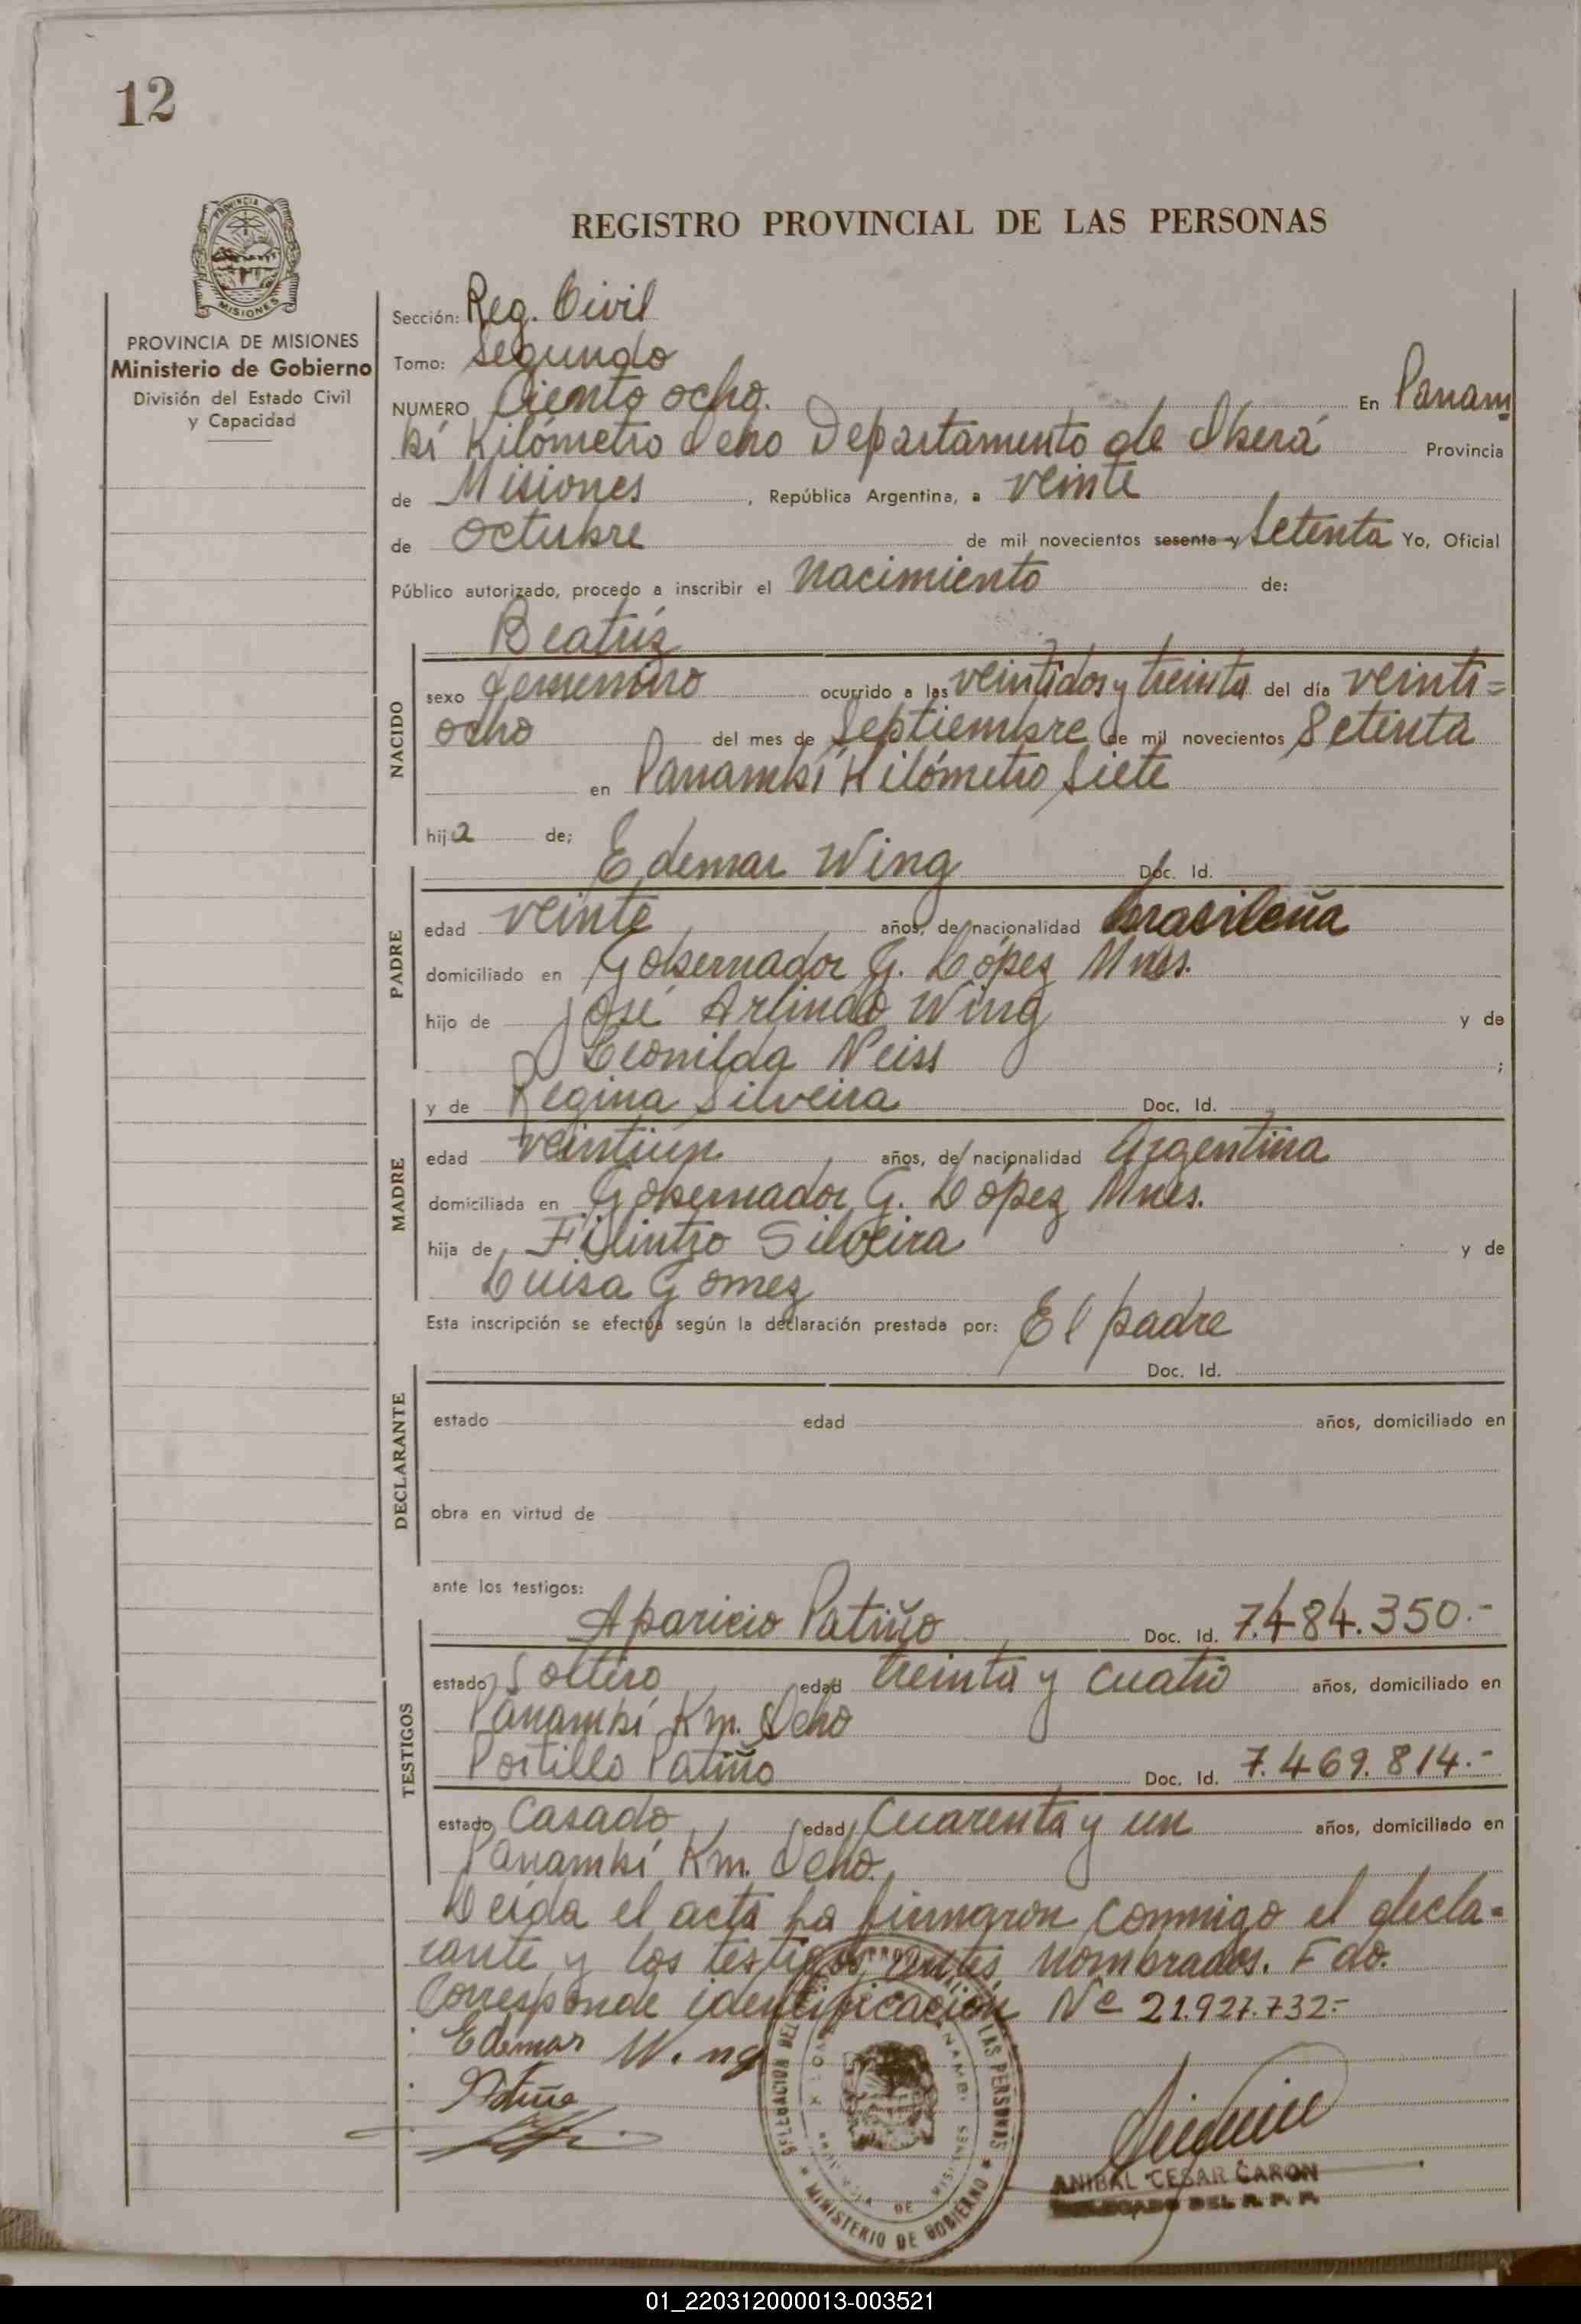 12
REGISTRO PROVINCIAL DE LAS PERSONAS
PROVINCIA
MISIONES
PROVINCIA DE MISIONES
Ministerio de Gobierno
División del Estado Civil
y Capacidad
Sección: Reg. Civil
Tomo: Segundo
NUMERO Ciento ocho. En Panam
bí Kilómetro Ocho Departamento de Oberá Provincia
de Misiones, República Argentina, a veinte
de octubre de mil novecientos sesenta y Setenta Yo, Oficial
Público autorizado, procedo a inscribir el nacimiento de:
Beatríz
NACIDO
sexo femenino ocurrido a las veintidos y treinta del día veinti=
ocho del mes de Septiembre de mil novecientos Setenta
en Panambí Kilómetro Siete
hija de;
Edemar Wing Doc. Id.
PADRE
edad veinte años, de nacionalidad brasileña
domiciliado en Gobernador G. López Mnes.
hijo de José Arlindo Wing y de
Leonilda Neiss ;
y de Regina Silveira Doc. Id.
MADRE
edad veintiún años, de nacionalidad Argentina
domiciliada en Gobernador G. López Mnes.
hija de Filintro Silveira y de
Luisa Gomez
Esta inscripción se efectúa según la declaración prestada por: El padre
Doc. Id.
DECLARANTE
estado edad años, domiciliado en
obra en virtud de
ante los testigos:
Aparicio Patiño Doc. Id. 7.484.350.-
TESTIGOS
estado Soltero edad treinta y cuatro años, domiciliado en
Panambí Km. Ocho
Portillo Patiño Doc. Id. 7.469.814.-
estado Casado edad Cuarenta y un años, domiciliado en
Panambí Km. Ocho.
Leída el acta la firmaron conmigo el decla=
rante y los testigos antes nombrados. Fdo.
Corresponde identificación Nº 21.927.732=
Edemar Wing
Patiño
DELEGACION DEL LAS PERSONAS
MINISTERIO DE GOBIERNO
ANIBAL CESAR CARON
DELEGADO DEL R. P. P.
01_220312000013-003521